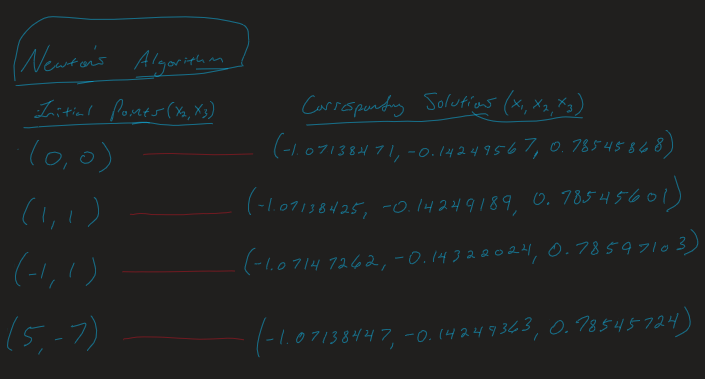 Newton's Algorithm
Initial Points (x₂, x₃) Corresponding Solutions (x₁, x₂, x₃)
(0, 0) (-1.07138471, -0.14249567, 0.78545868)
(1, 1) (-1.07138425, -0.14249189, 0.78545601)
(-1, 1) (-1.07147262, -0.14322024, 0.78597103)
(5, -7) (-1.07138447, -0.14249363, 0.78545724)